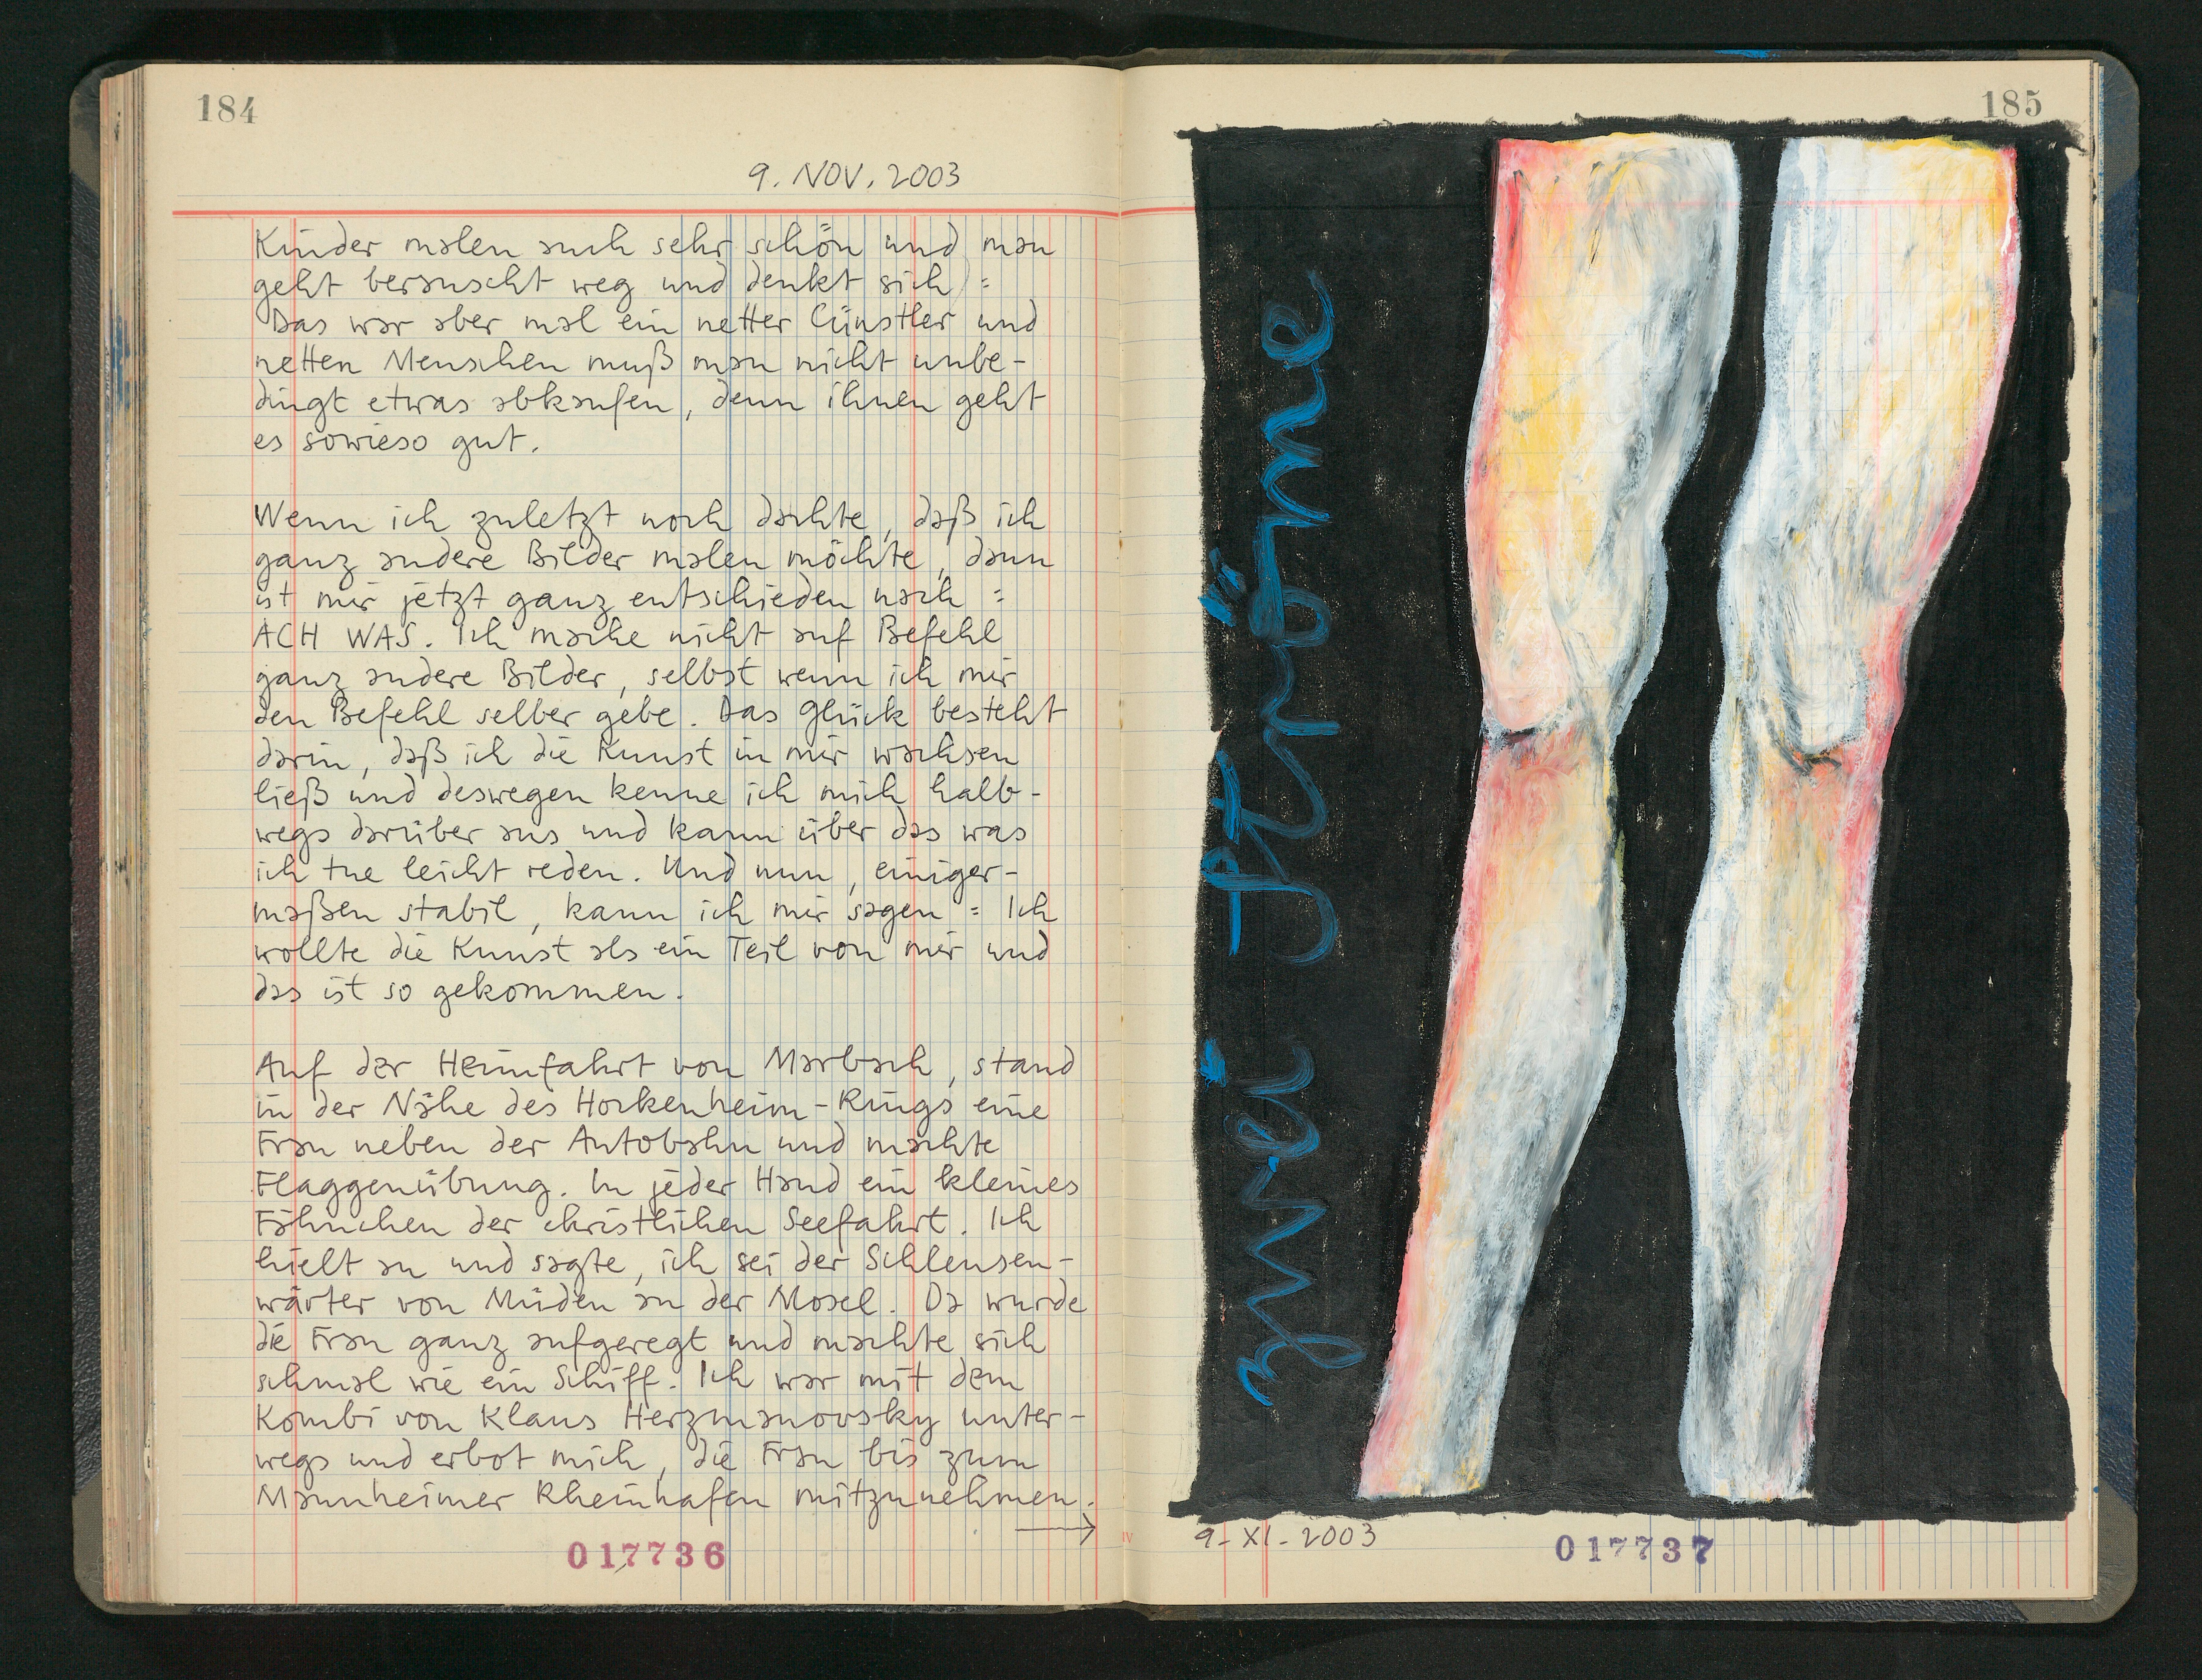 184
9. NOV. 2003
Kinder malen auch sehr schön und man
geht berauscht weg und denkt sich =
Das war aber mal ein netter Cünstler und
netten Menschen muß man nicht unbe-
dingt etwas abkaufen, denn ihnen geht
es sowieso gut.
Wenn ich zuletzt noch dachte, daß ich
ganz andere Bilder malen möchte, dann
ist mir jetzt ganz entschieden nach =
ACH WAS. Ich mache nicht auf Befehl
ganz andere Bilder, selbst wenn ich mir
den Befehl selber gebe. Das Glück besteht
darin, daß ich die Kunst in mir wachsen
ließ und deswegen kenne ich mich halb-
wegs darüber aus und kann über das was
ich tue leicht reden. Und nun, einiger-
maßen stabil, kann ich mir sagen = Ich
wollte die Kunst als ein Teil von mir und
das ist so gekommen.
Auf der Heimfahrt von Marbach, stand
in der Nähe des Hockenheim-Rings eine
Frau neben der Autobahn und machte
Flaggenübung. In jeder Hand ein kleines
Fähnchen der christlichen Seefahrt. Ich
hielt an und sagte, ich sei der Schleusen-
wärter von Müden an der Mosel. Da wurde
die Frau ganz aufgeregt und machte sich
schmal wie ein Schiff. Ich war mit dem
Kombi von Klaus Herzmanovsky unter-
wegs und erbot mich, die Frau bis zum
Mannheimer Rheinhafen mitzunehmen.
→
017736
185
zwei Ströme
9-XI-2003
017737
IV